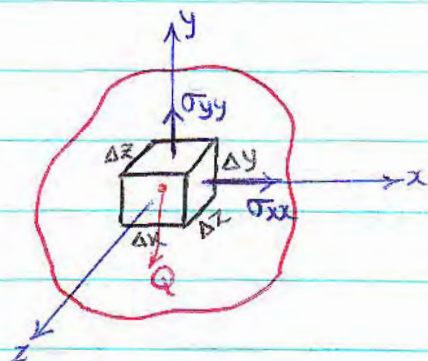 y
σyy
Δz
Δy
x
σxx
Δz
Δx
Q
z